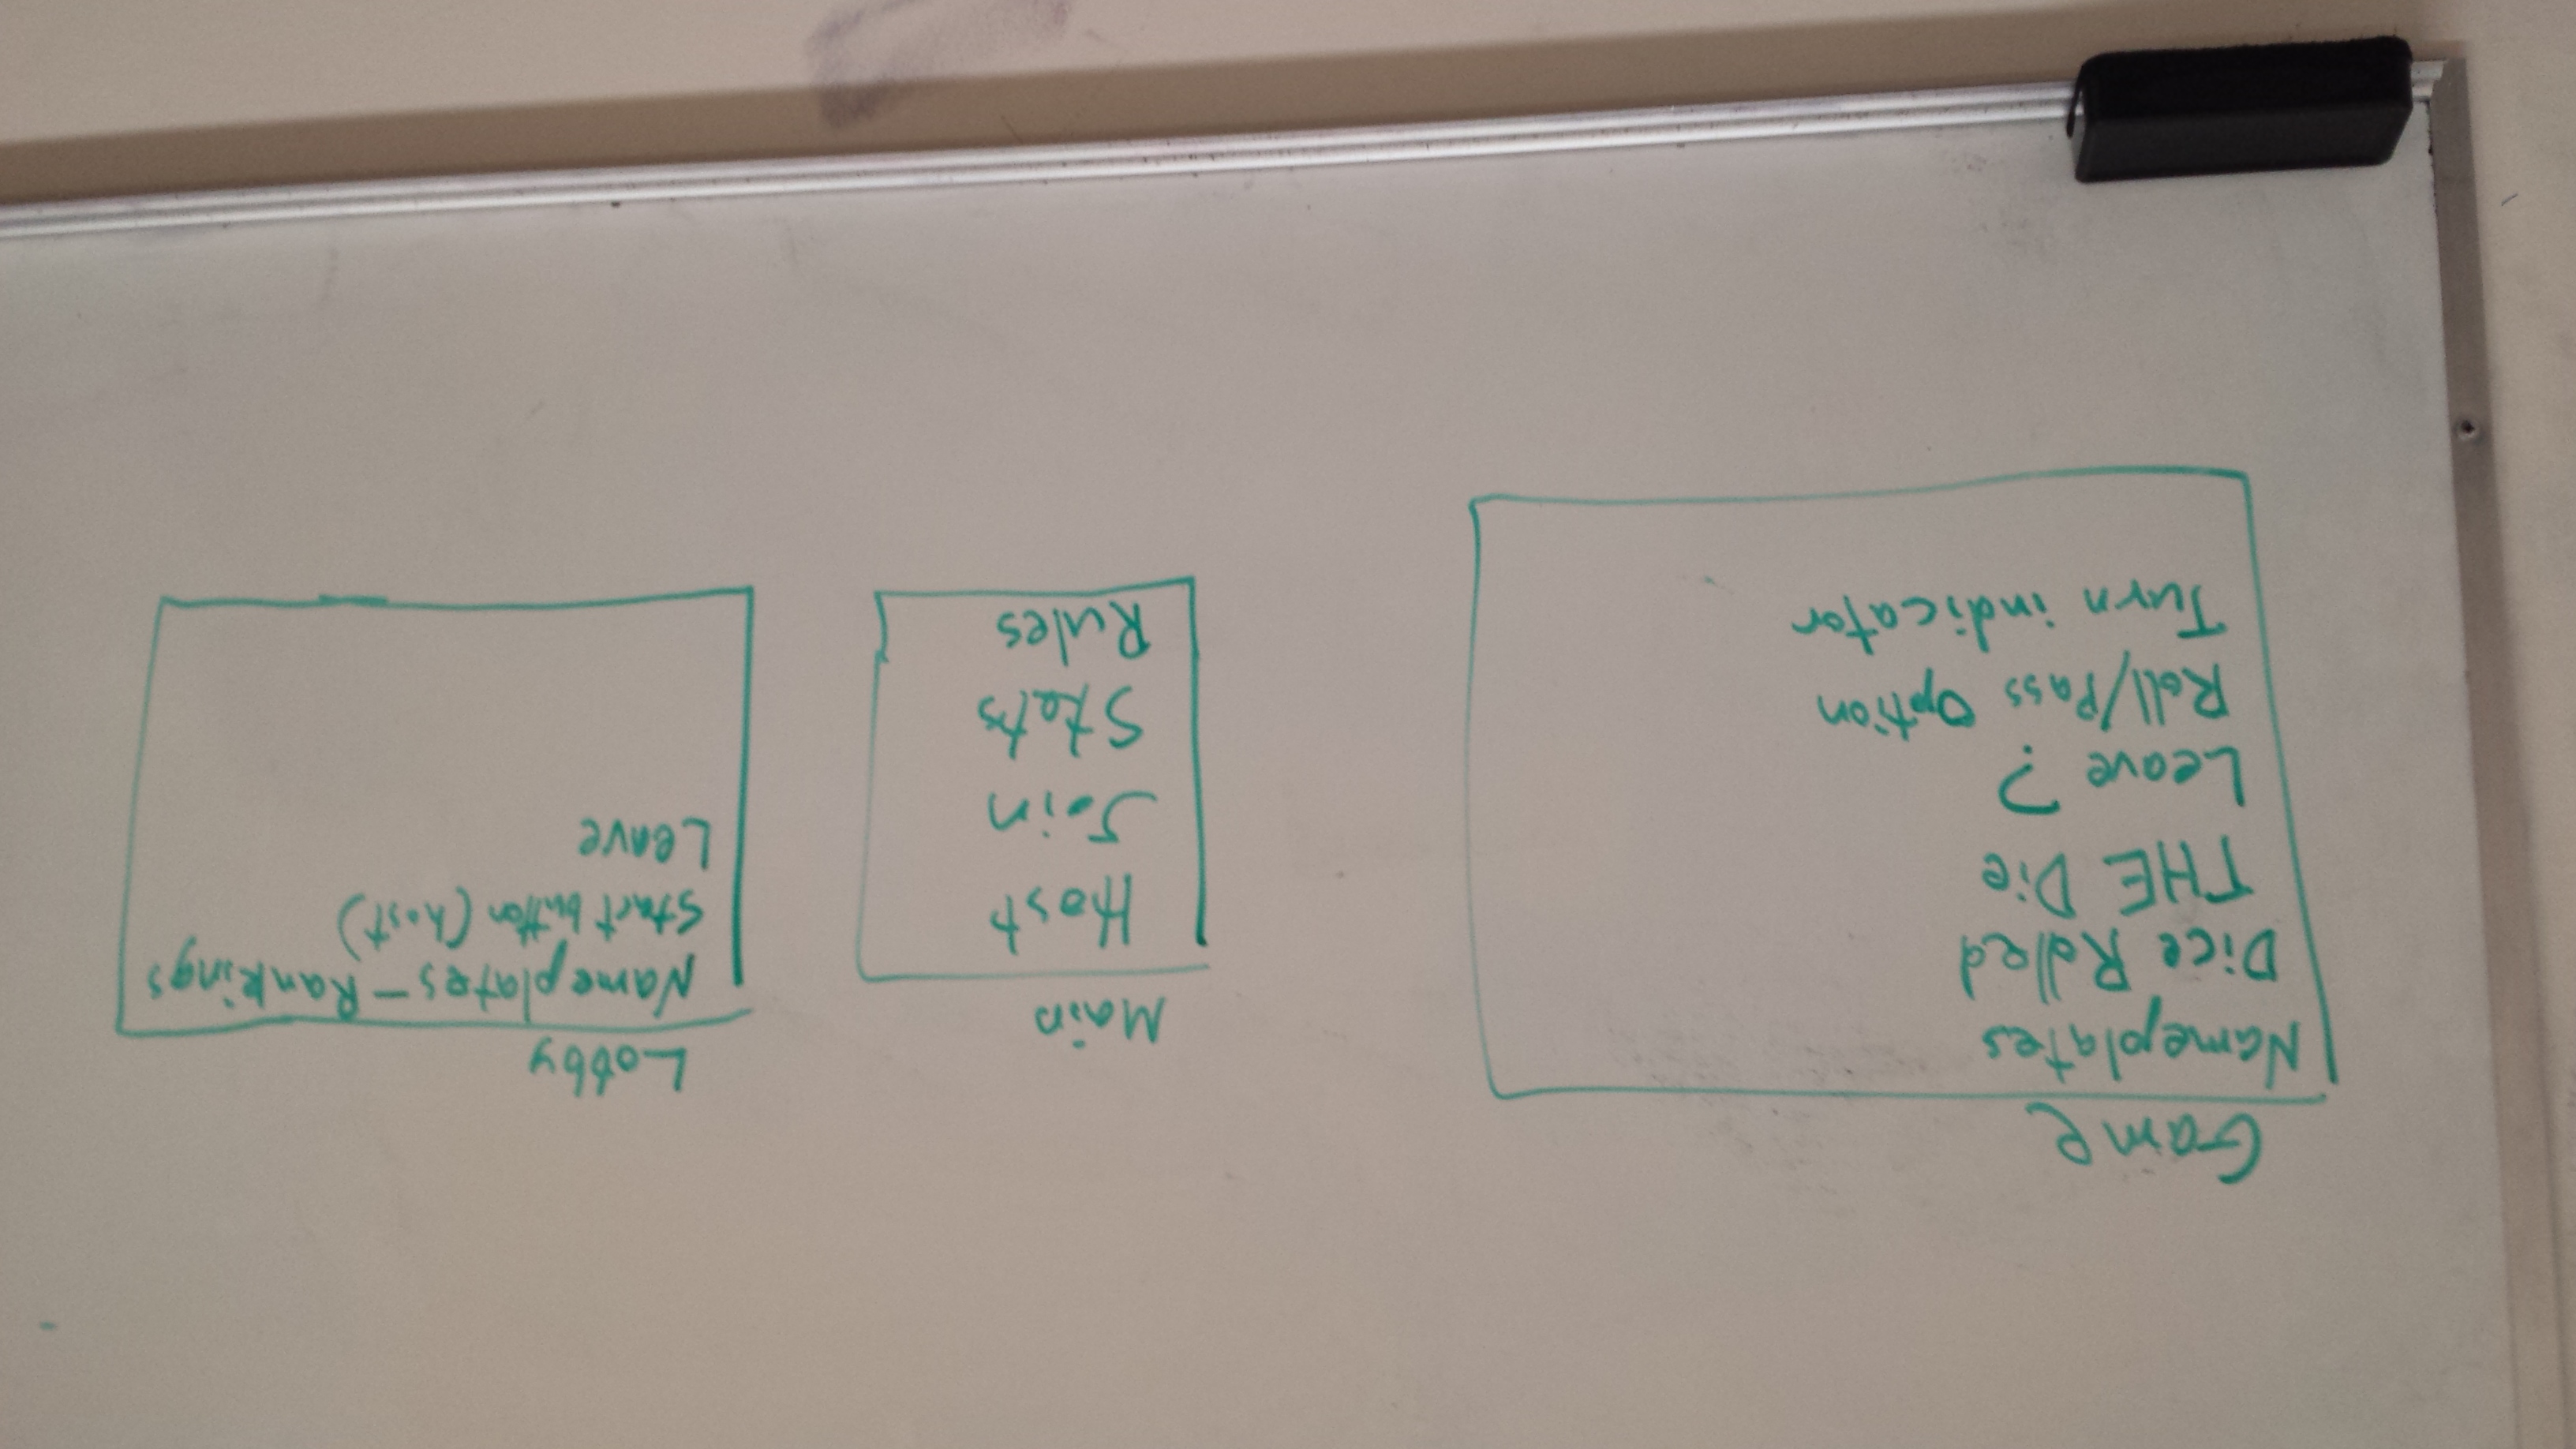 Game
Nameplates
Dice Rolled
THE Die
Leave ?
Roll/Pass Option
Turn indicator
Main
Host
Join
Stats
Rules
Lobby
Nameplates - Rankings
Start button (host)
Leave